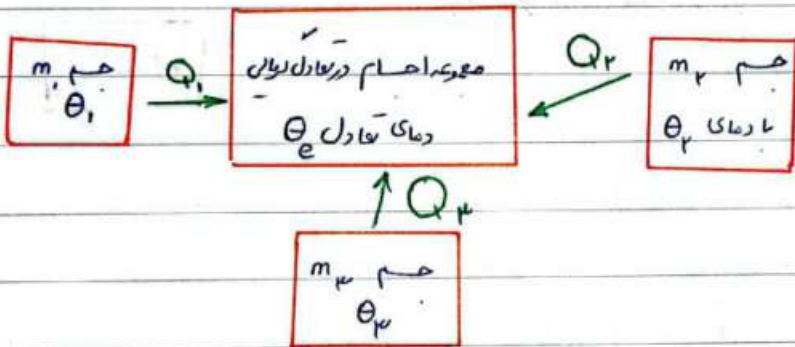 جسم m۱
θ۱
Q۱
مجموعه اجسام در تعادل گرمایی
دمای تعادل θe
Q۲
جسم m۲
با دمای θ۲
Q۳
جسم m۳
θ۳